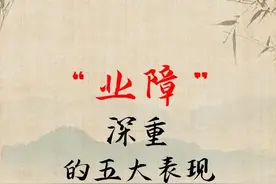 “业障”
深重
的五大表现